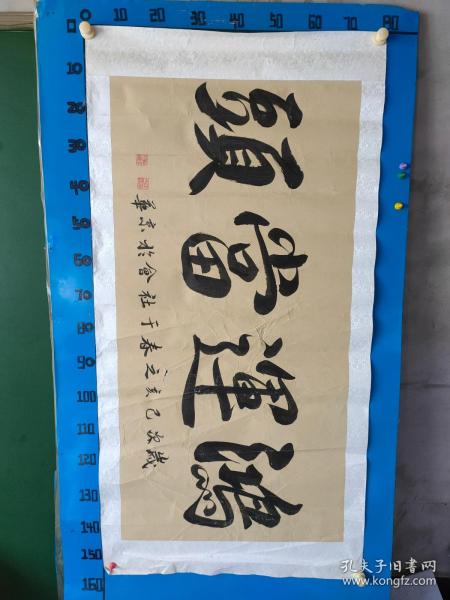 0 10 20 30 40 50 60 70 80
10
20
30
40
50
60
70
80
90
100
110
120
130
140
150
160
鴻運當頭
歲次己亥之春于社會於京華
孔夫子旧书网
www.kongfz.com